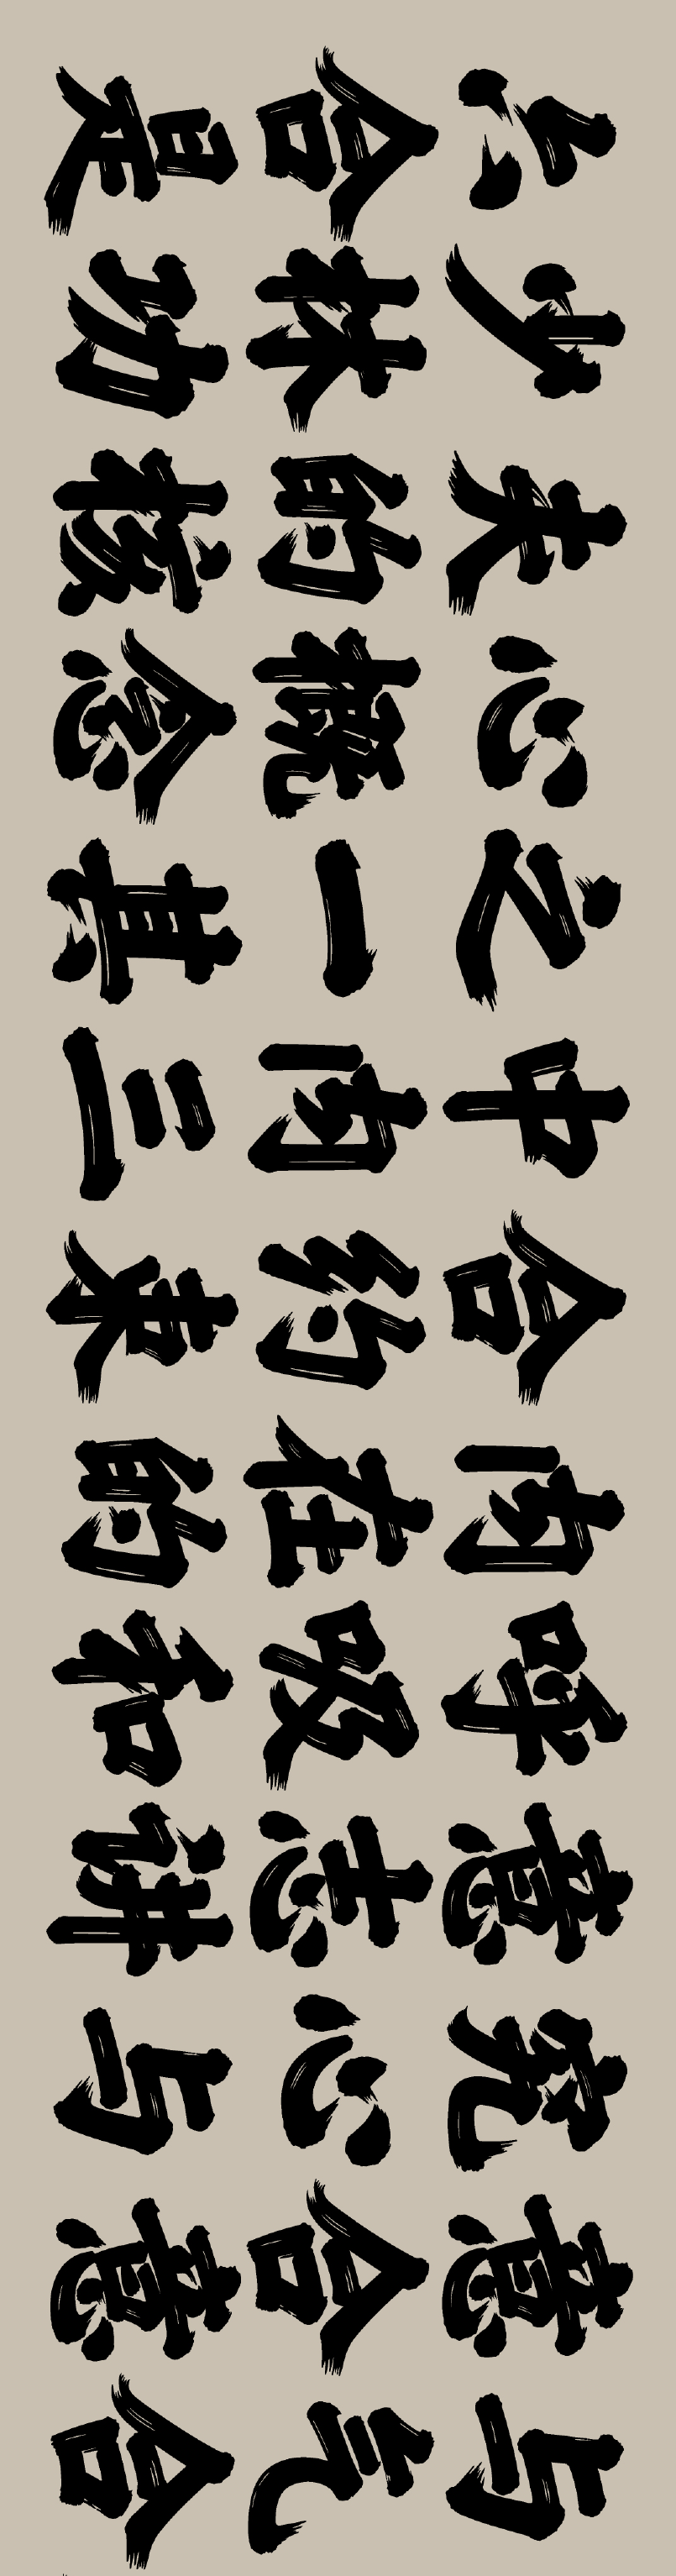 六合是
少林功
夫的核
心概念
之一其
中内三
合约束
内在的
呼吸和
意志讲
究心与
意合意
与气合